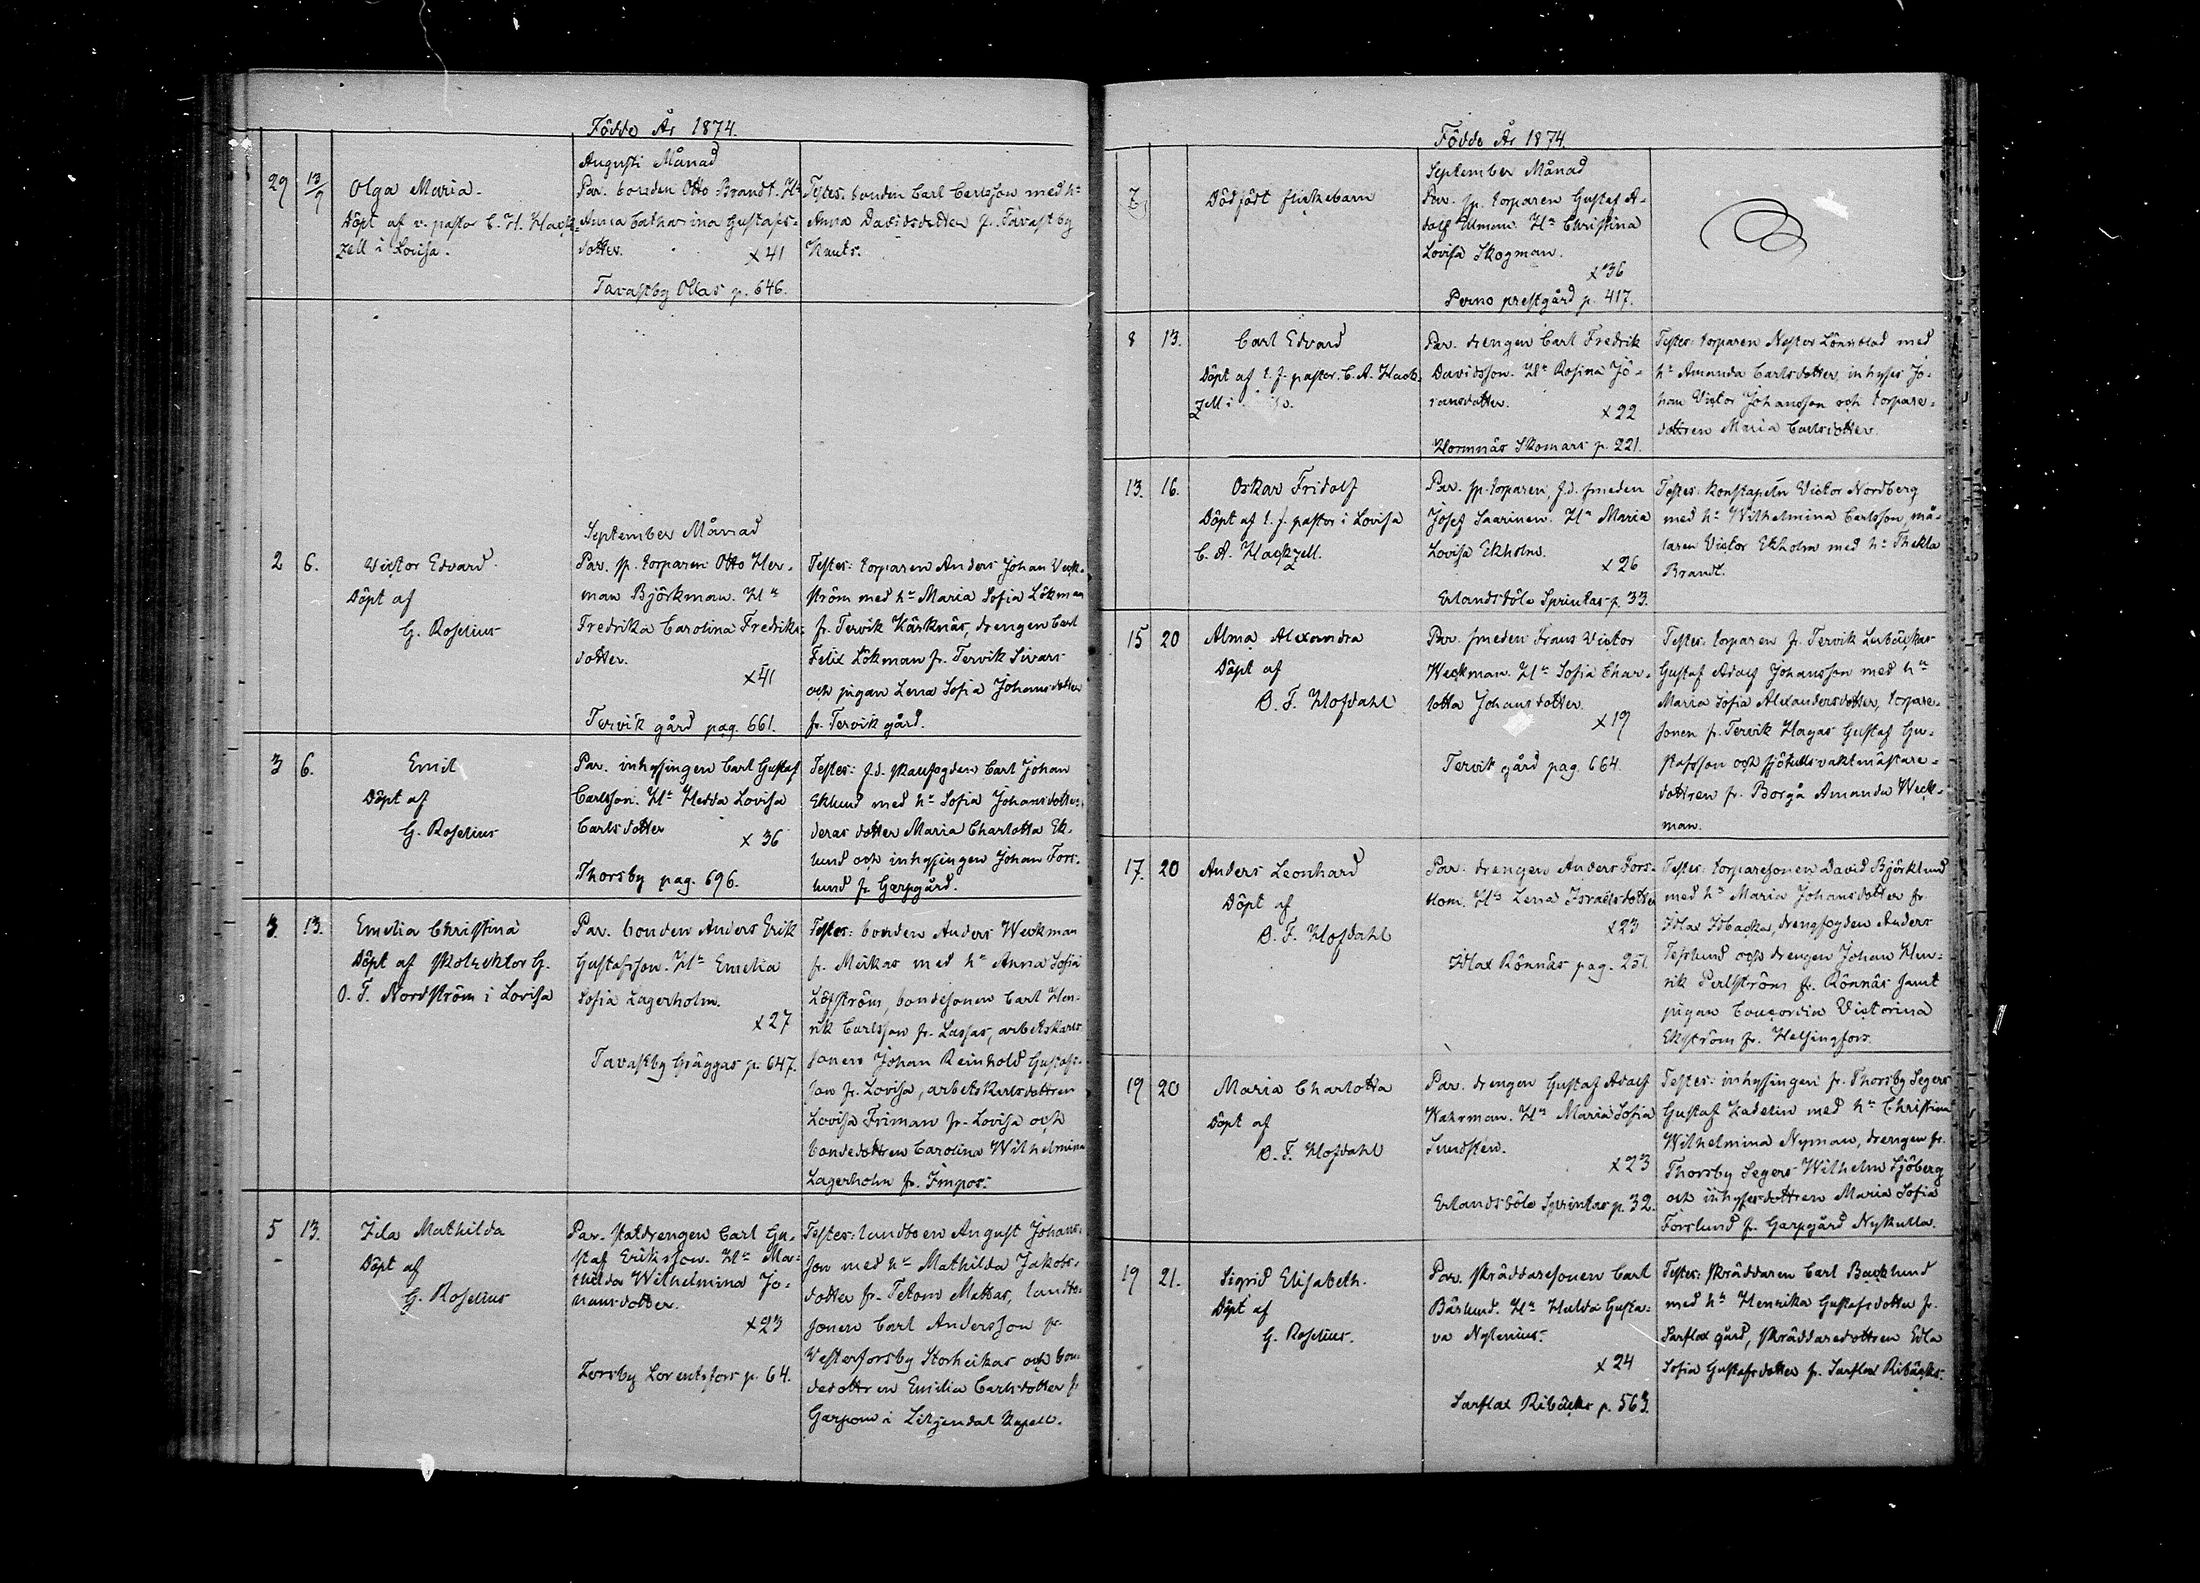 Födde År 1874.
Augusti Månad
29 13/9 Olga Maria.
Döpt af v. pastor C. H. Hack-
zell i Lovisa.
Par. bonden Otto Brandt. Hu
Anna Catharina Gustafs-
dotter.
x 41
Tavastby Ollas p. 646.
Testes: bonden Carl Carlsson med hu
Anna Davidsdotter fr. Tavastby
Knuts.
September Månad
2 6. Victor Edvard.
Döpt af
G. Roselius
Par. sp. torparen Otto Her-
man Björkman. Hu
Fredrika Carolina Fredriks-
dotter.
x 41
Tervik gård pag. 661.
Testes: torparen Anders Johan Veck-
ström med hu Maria Sofia Lökman
fr. Tervik Kärknäs, drengen Carl
Felix Lökman fr. Tervik Sivars
och pigan Lena Sofia Johansdotter
fr. Tervik gård.
3 6. Emil
Döpt af
G. Roselius
Par. inhysingen Carl Gustaf
Carlsson. Hu Hedda Lovisa
Carlsdotter
x 36
Thorsby pag. 696.
Testes: f.d. skaufogden Carl Johan
Eklund med hu Sofia Johansdotter,
deras dotter Maria Charlotta Ek-
lund och inhysingen Johan Fors-
lund fr Garpgård.
3. 13. Emelia Christina
Döpt af skolrektor G.
O. F. Nordström i Lovisa
Par. bonden Anders Erik
Gustafsson. Hu Emelia
Sofia Lagerholm.
x 27
Tavastby Gräggas p. 647.
Testes: bonden Anders Weckman
fr. Mickas med hu Anna Sofia
Löfström, bondesonen Carl Hen-
rik Carlsson fr. Lassas, arbetskarls-
sonen Johan Reinhold Gustafs-
son fr. Lovisa, arbetskarlsdottren
Lovisa Friman fr. Lovisa och
bondedottren Carolina Wilhelmina
Lagerholm fr. Impos.
5 13. Ida Mathilda
Döpt af
G. Roselius
Par. statdrengen Carl Gu-
staf Eriksson. Hu Ma-
thilda Wilhelmina Jo-
hansdotter.
x 23
Forsby Lorentsfors p. 64.
Testes: landboen August Johans-
son med hu Mathilda Jakobs-
dotter fr. Tetom Mattas, landbo-
sonen Carl Andersson fr
Vesterforsby Storheikas och bon-
dedottren Emilia Carlsdotter fr
Garpom i Liljendal Kapell.
Födde År 1874.
September Månad
7 Dödfödt flickebarn
Par. sp. torparen Gustaf A-
dolf Uman. Hu Christina
Lovisa Skogman.
x 36
Perno prestgård p. 417.
8 13. Carl Edvard
Döpt af t. f. pastor C. A. Hack-
zell i
Par. drengen Carl Fredrik
Davidsson. Hu Rosina Jö-
ransdotter.
x 22
Hormnäs Skomars p. 221.
Testes: torparen Nestor Lönnblad med
hu Amanda Carlsdotter, inhyses Jo-
han Victor Johansson och torpare-
dottren Maria Carlsdotter.
13. 16. Oskar Fridolf
Döpt af t. f. pastor i Lovisa
C. A. Hackzell.
Par. sp. torparen, f.d. smeden
Josef Saarinen. Hu Maria
Lovisa Ekholm.
x 26
Erlandsböle Sprintas p. 33.
Testes: konstapeln Victor Nordberg
med hu Wilhelmina Carlsson, må-
laren Victor Ekholm med hu Thekla
Brandt.
15 20 Alma Alexandra
Döpt af
B. F. Hofdahl
Par. smeden Frans Victor
Weckman. Hu Sofia Char-
lotta Johansdotter.
x 19
Tervik gård pag. 664.
Testes: torparen fr. Tervik Lerbäckas
Gustaf Adolf Johansson med hu
Maria Sofia Alexandersdotter, torpare-
sonen fr. Tervik Hagas Gustaf Gu-
stafsson och sjötullsvaktmästare-
dottren fr. Borgå Amanda Weck-
man.
17. 20 Anders Leonhard
Döpt af
B. F. Hofdahl
Par. drengen Anders Fors-
blom. Hu Lena Israelsdotter
x 23
Idlax Rönnäs pag. 251.
Testes: torparesonen David Björklund
med hu Maria Johansdotter fr
Idlax Idbacka, drengfogden Anders
Teslund och drengen Johan Hen-
rik Perlström fr. Rönnäs samt
pigan Concordia Victorina
Ekström fr. Helsingfors.
19 20 Maria Charlotta
Döpt af
B. F. Hofdahl
Par. drengen Gustaf Adolf
Wahrman. Hu Maria Sofia
Sundsten.
x 23
Erlandsböle Sprintas p. 32.
Testes: inhysingen fr. Thorsby Segers
Gustaf Kadelin med hu Christina
Wilhelmina Nyman, drengen fr.
Thorsby Segers Wilhelm Sjöberg
och inhysesdottren Maria Sofia
Forslund fr. Garpgård Nykulla.
19 21. Sigrid Elisabeth.
Döpt af
G. Roselius.
Par. skräddaresonen Carl
Bärlund. Hu Hulda Gusta-
va Nylenius.
x 24
Sarflax Ribäcks p. 563.
Testes: skräddaren Carl Backlund
med hu Henrika Gustafsdotter fr.
Sarflax gård, skräddaredottren Edla
Sofia Gustafsdotter fr. Sarflax Ribäcks.